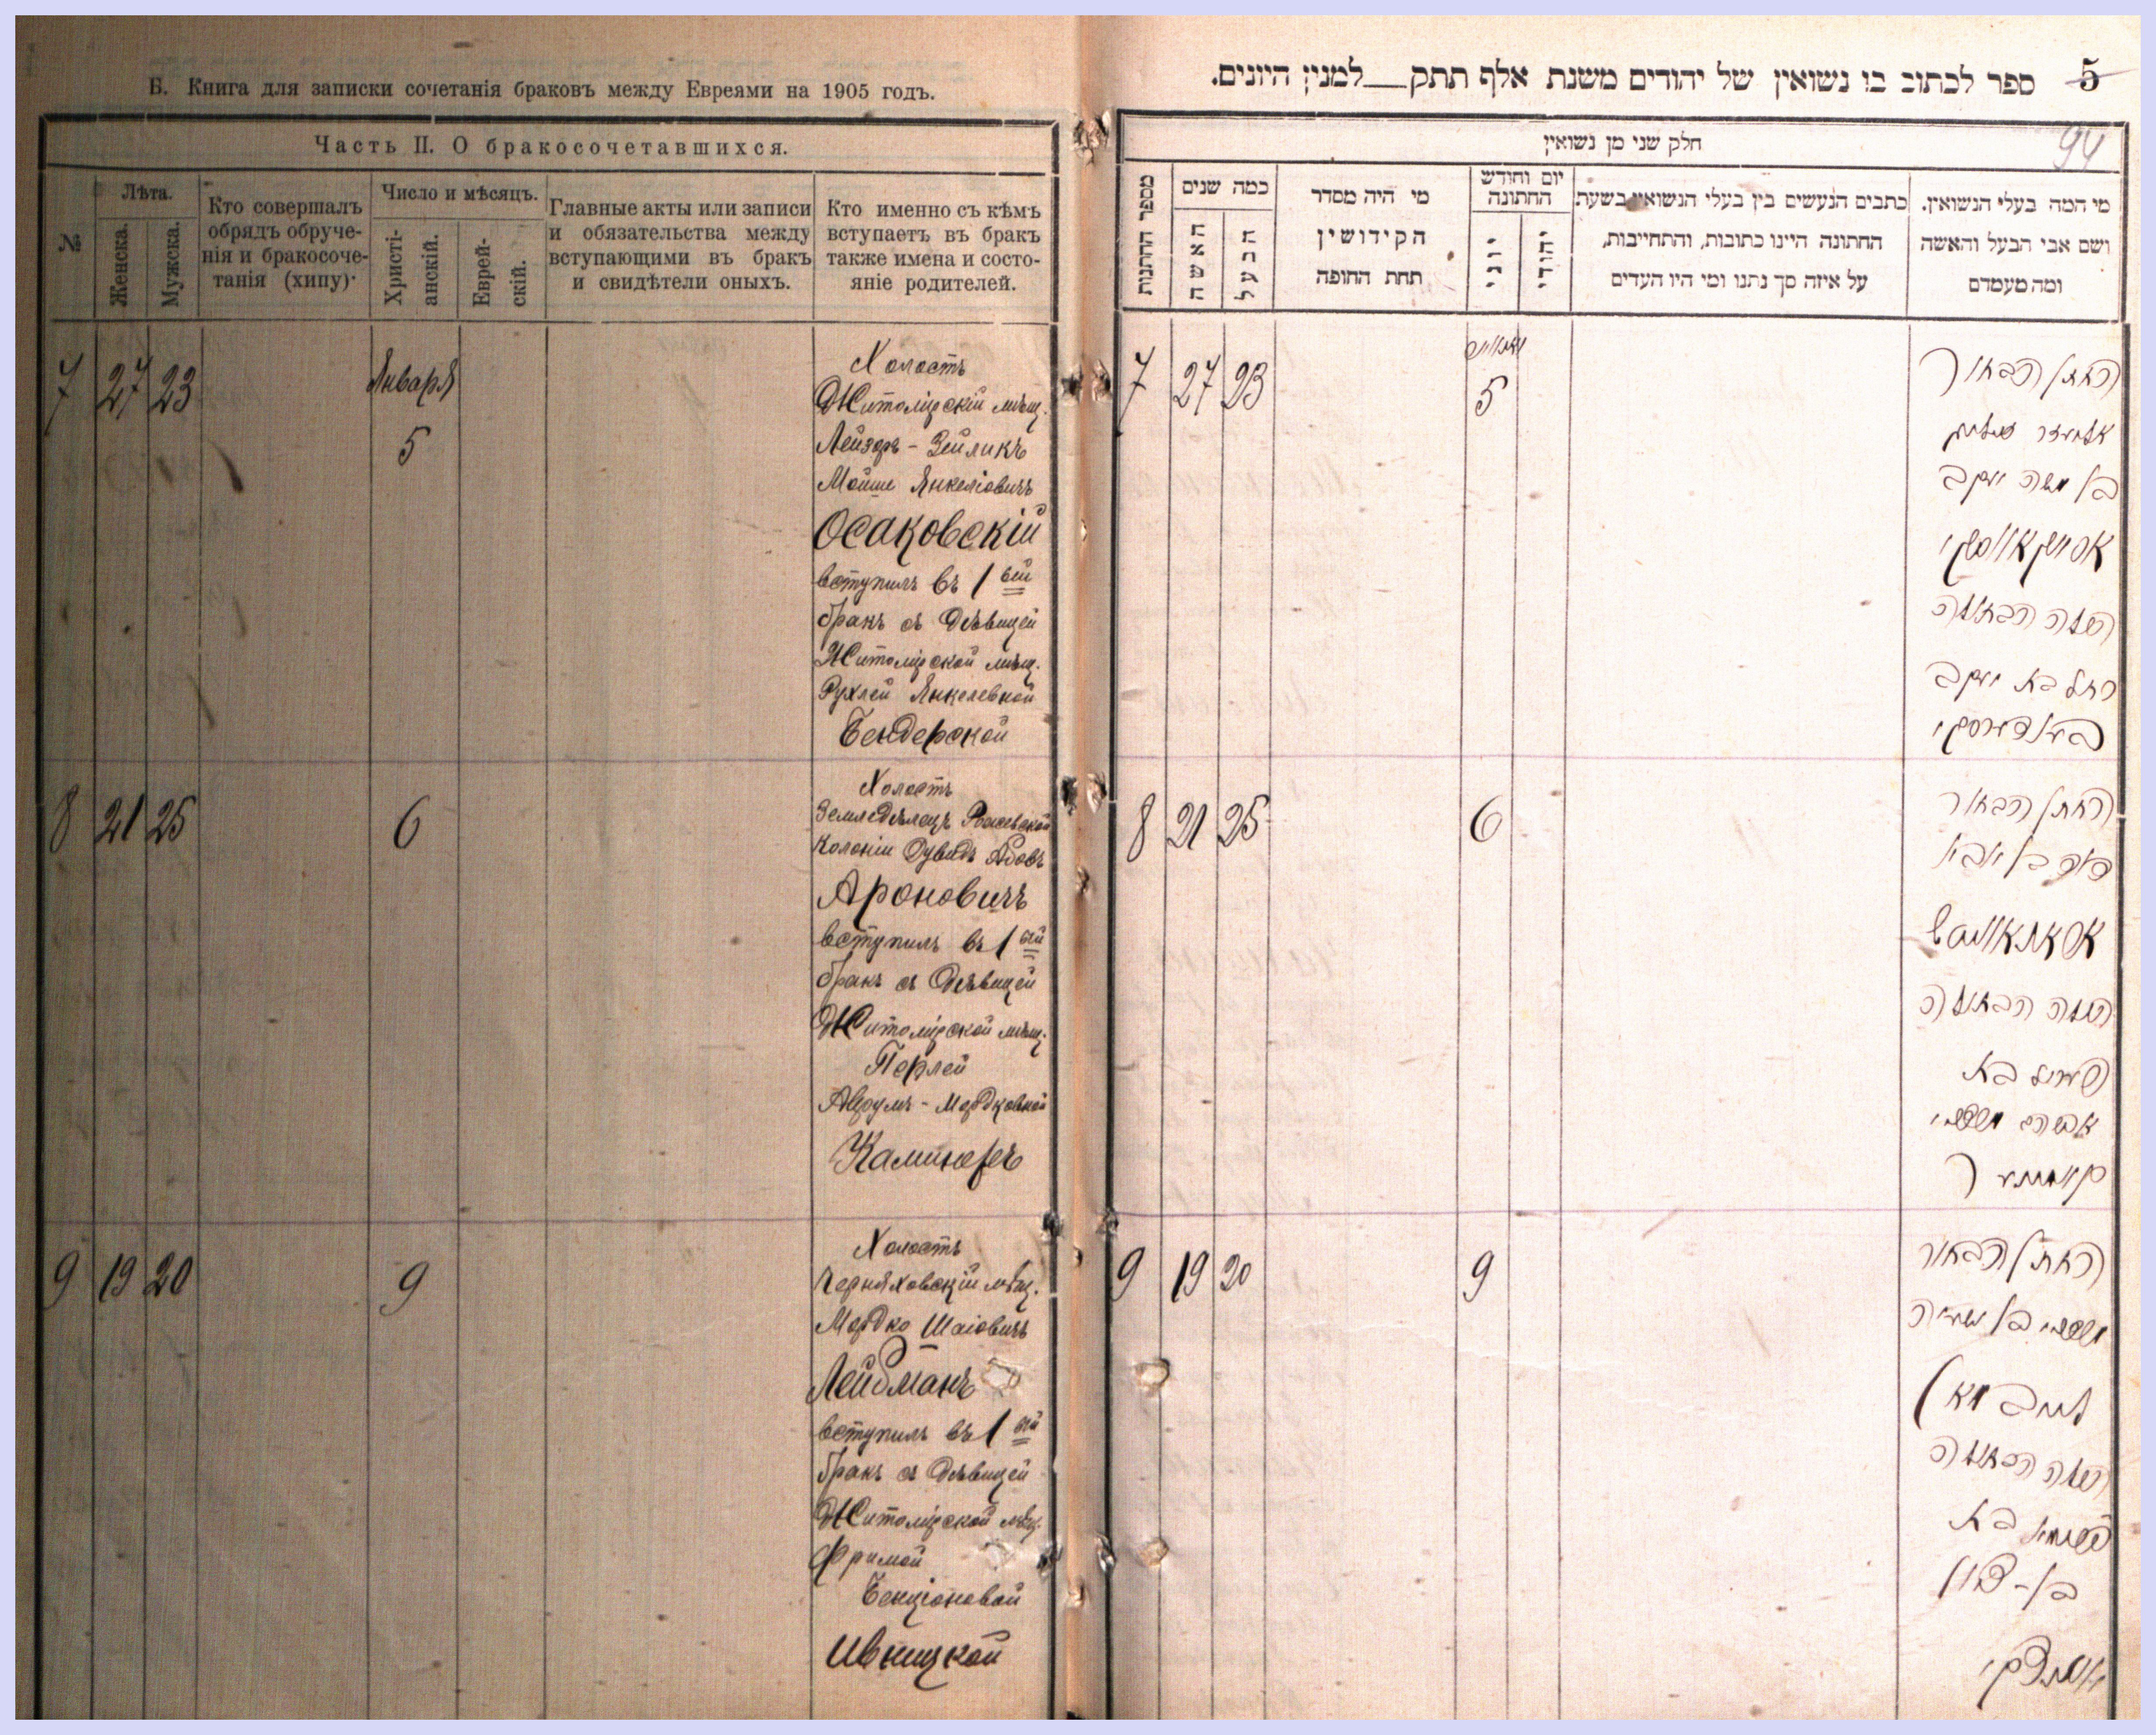 Б. Книга для записки сочетанія браковъ между Евреями на 1905 годъ.
Часть II. О бракосочетавшихся.
№
Лѣта.
Женска.
Мужска.
Кто совершалъ
обрядъ обруче-
нія и бракосоче-
танія (хипу)·
Число и мѣсяцъ.
Христі-
анскій.
Еврей-
скій.
Главные акты или записи
и обязательства между
вступающими въ бракъ
и свидѣтели оныхъ.
Кто именно съ кѣмъ
вступаетъ въ бракъ
также имена и состо-
яніе родителей.
7 27 23
Января
5
Холостъ
Житомірскій мѣщ.
Лейзеръ - Зейликъ
Мойше Янкеліовичъ
Осаковскій
вступилъ въ 1 ый
бракъ съ Дѣвицей
Житомірской мѣщ.
Рухлей Янкелевной
Бендерской
8 21 25
6
Холостъ
Земледѣлецъ
Колоніи Дувидъ
Ароновичъ
вступилъ въ 1 ый
бракъ съ Дѣвицей
Житомірской мѣщ.
Перлей
Аврумъ - Мордковной
Каминеръ
9 19 20
9
Холостъ
Черняховскій мѣщ.
Мордко Шаіовичъ
Лейбманъ
вступилъ въ 1 ый
бракъ съ Дѣвицей
Житомірской мѣщ.
Фримой
Бенціоновой
Ивницкой
5
ספר לכתוב בו נשואין של יהודים משנת אלף תתק__למנין היונים.
94
חלק שני מן נשואין
מי המה בעלי הנשואין.
ושם אבי הבעל והאשה
ומה מעמדם
כתבים הנעשים בין בעלי הנשואין בשעת
החתונה היינו כתובות, והתחייבות,
על איזה סך נתנו ומי היו העדים
יום וחודש
החתונה
יהודי
יוני
מי היה מסדר
הקידושין
תחת החופה
כמה שנים
הבעל
האשה
מספר החתנות
7 27 23
5
החתן הבחור
אליעזר זעליג
בן משה יעקב
אסאקאווסקי
הכלה הבתולה
רחל בת יעקב
בענדערסקי
8 21 25
6
החתן הבחור
הכלה הבתולה
פערל בת
אברהם מרדכי
קאמינער
9 19 20
9
החתן הבחור
מרדכי בן ישעיה
לייבמאן
הכלה הבתולה
פרומא בת
בן - ציון